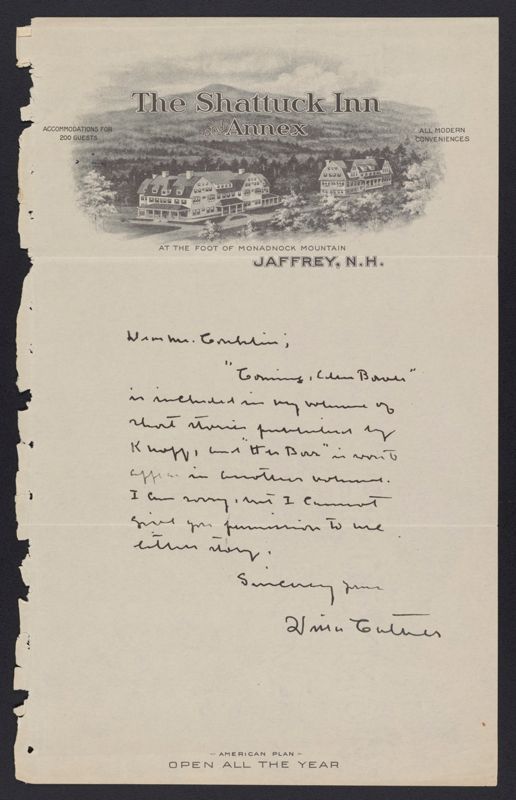 The Shattuck Inn
and Annex
ACCOMMODATIONS FOR
200 GUESTS
ALL MODERN
CONVENIENCES
AT THE FOOT OF MONADNOCK MOUNTAIN
JAFFREY, N.H.
Dear Mr. Conklin;
"Coming, Eden Bower"
is included in my volume of
short stories published by
Knopf, and "Her Boss" is
appear in another volume.
I am sorry, but I cannot
give you permission to use
either story.
Sincerely yours
Willa Cather
- AMERICAN PLAN -
OPEN ALL THE YEAR